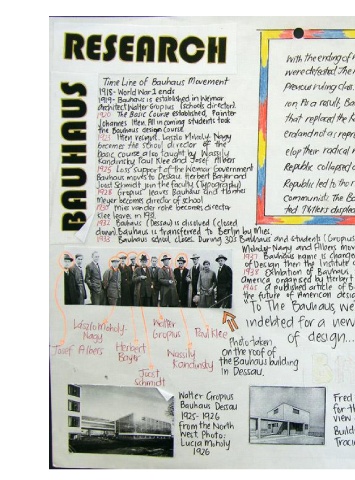 BAUHAUS
RESEARCH
Time Line of Bauhaus Movement
1918- World War 1 ends
1919- Bauhaus is established in Weimar
architect Walter Gropius (schools director).
1920 The Basic Course established, Painter
Johannes Itten. All incoming students took
the Bauhaus design course.
1923 Itten resigns. Laszlo Moholy Nagy
becomes the school director of the
Basic course also taught by Wassily
Kandinsky, Paul Klee and Josef Albers
1925 Lost support of the Weimar Government
Bauhaus moves to Dessau. Herbert Bayer and
Joost Schmidt join the faculty. (Typography)
1928 Gropius leaves Bauhaus and Hannes
Meyer becomes director of school
Mies vander rohe becomes director
Klee leaves in 1931.
1932 Bauhaus (Dessau) is disolved (closed
down) Bauhaus is transferred to Berlin by Mies.
Bauhaus school closes. During 30's Bauhaus and students (Gropius
Moholy-Nagy and Albers
1937 Bauhaus name is change
of Design then the Institute
1938 Exhibition of Bauhaus
America organised by Herbert
a published article of B
the future of American desi
"To The Bauhaus we
indebted for a new
of design...
With the ending of
were defeated. The
Previous ruling class
ion. As a result, Bau
that replaced the
endand not a rep
elop their radical
Republic collapsed
Republic led to the
communists. The Ba
Hitlers
Laszlo Moholy-
Nagy
Walter
Gropius
Paul Klee
Josef Albers
Herbert
Bayer
Wassily
Kandinsky
Joost
Schmidt
Photo taken
on the roof of
the Bauhaus building
in Dessau.
Walter Gropius
Bauhaus Dessau
1925-1926
from the North
West. Photo:
Lucia Moholy
1926
Fred
for th
view
Build
Traci